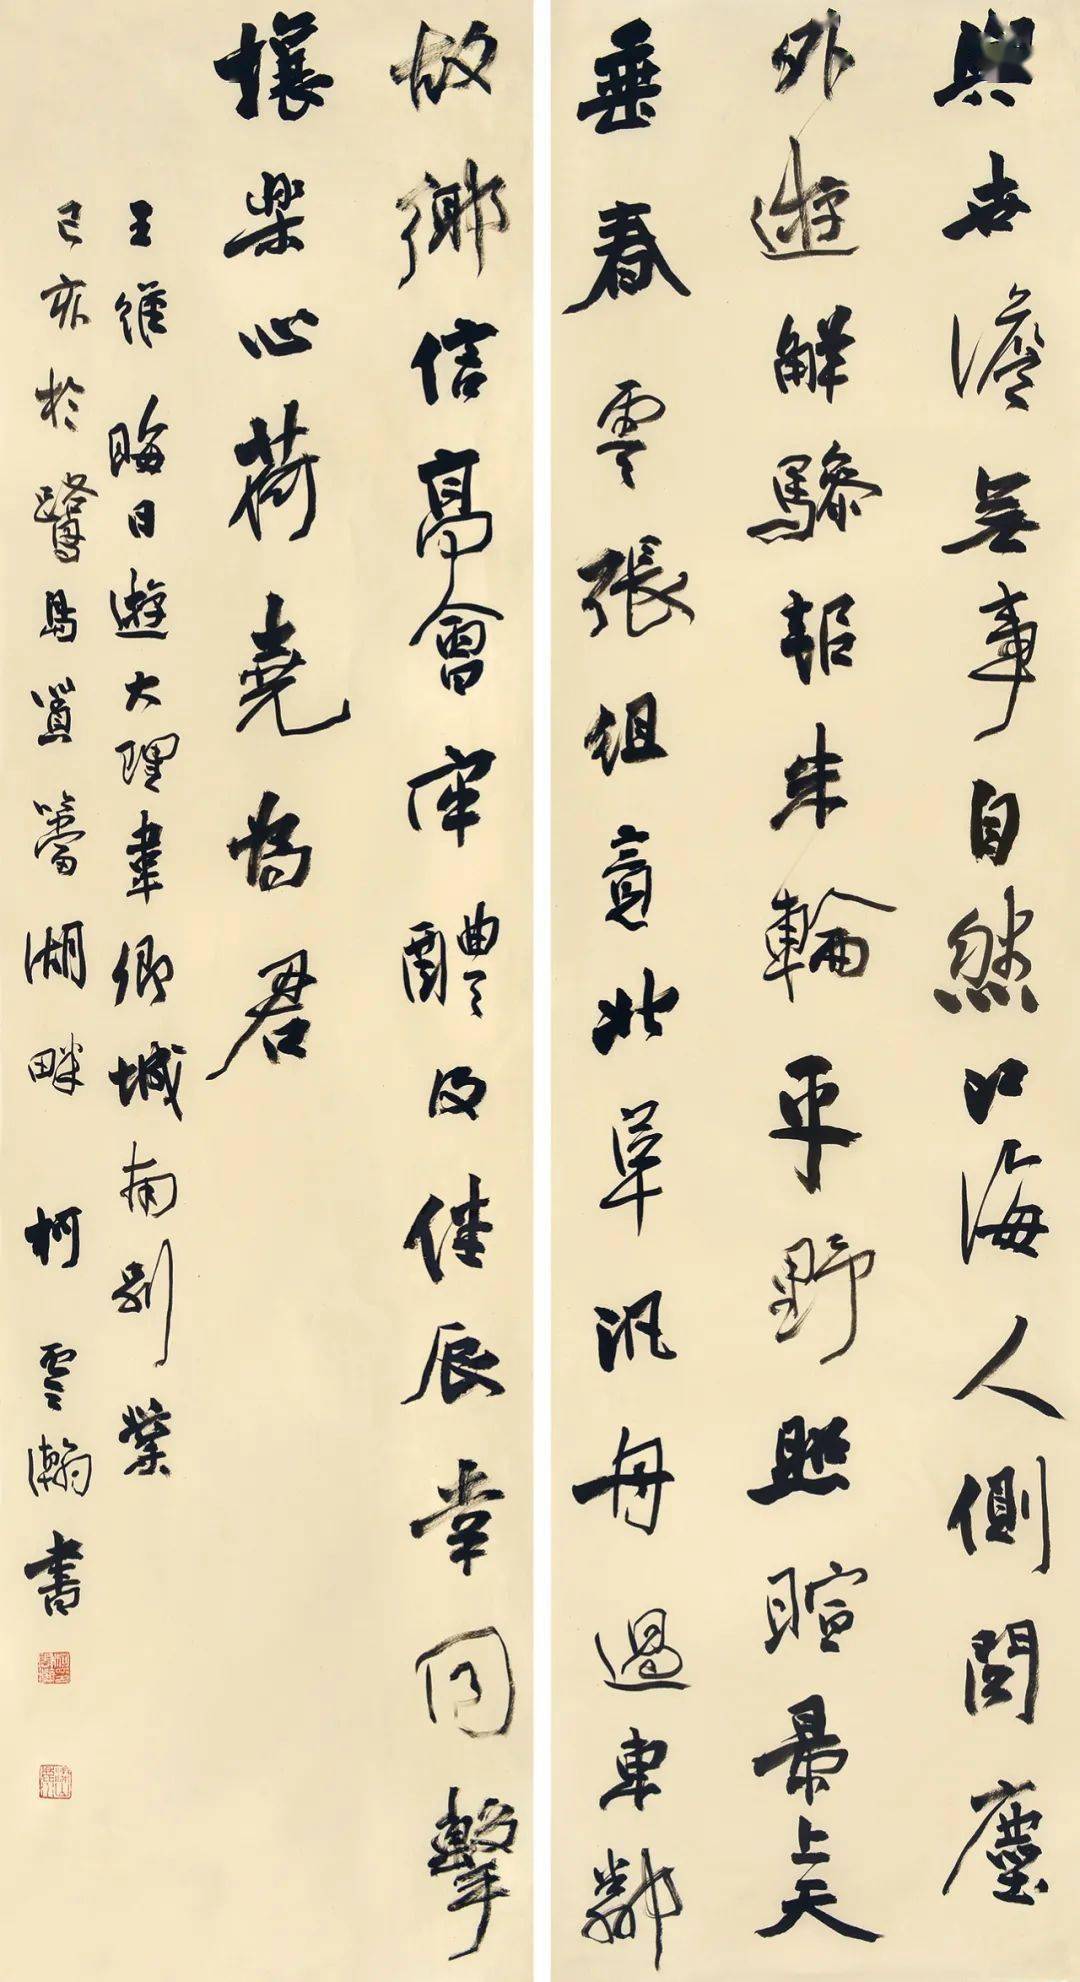 與世澹無事自然江海人側聞塵
外遊解驂軔朱輪平野照暄景上天
垂春雲張組竟北阜汎舟過東鄰
故鄉信高會牢醴及佳辰幸同擊
壤樂心荷堯為君
王維晦日遊大理韋卿城南別業
己亥於鷺島篔簹湖畔 柯雲瀚書